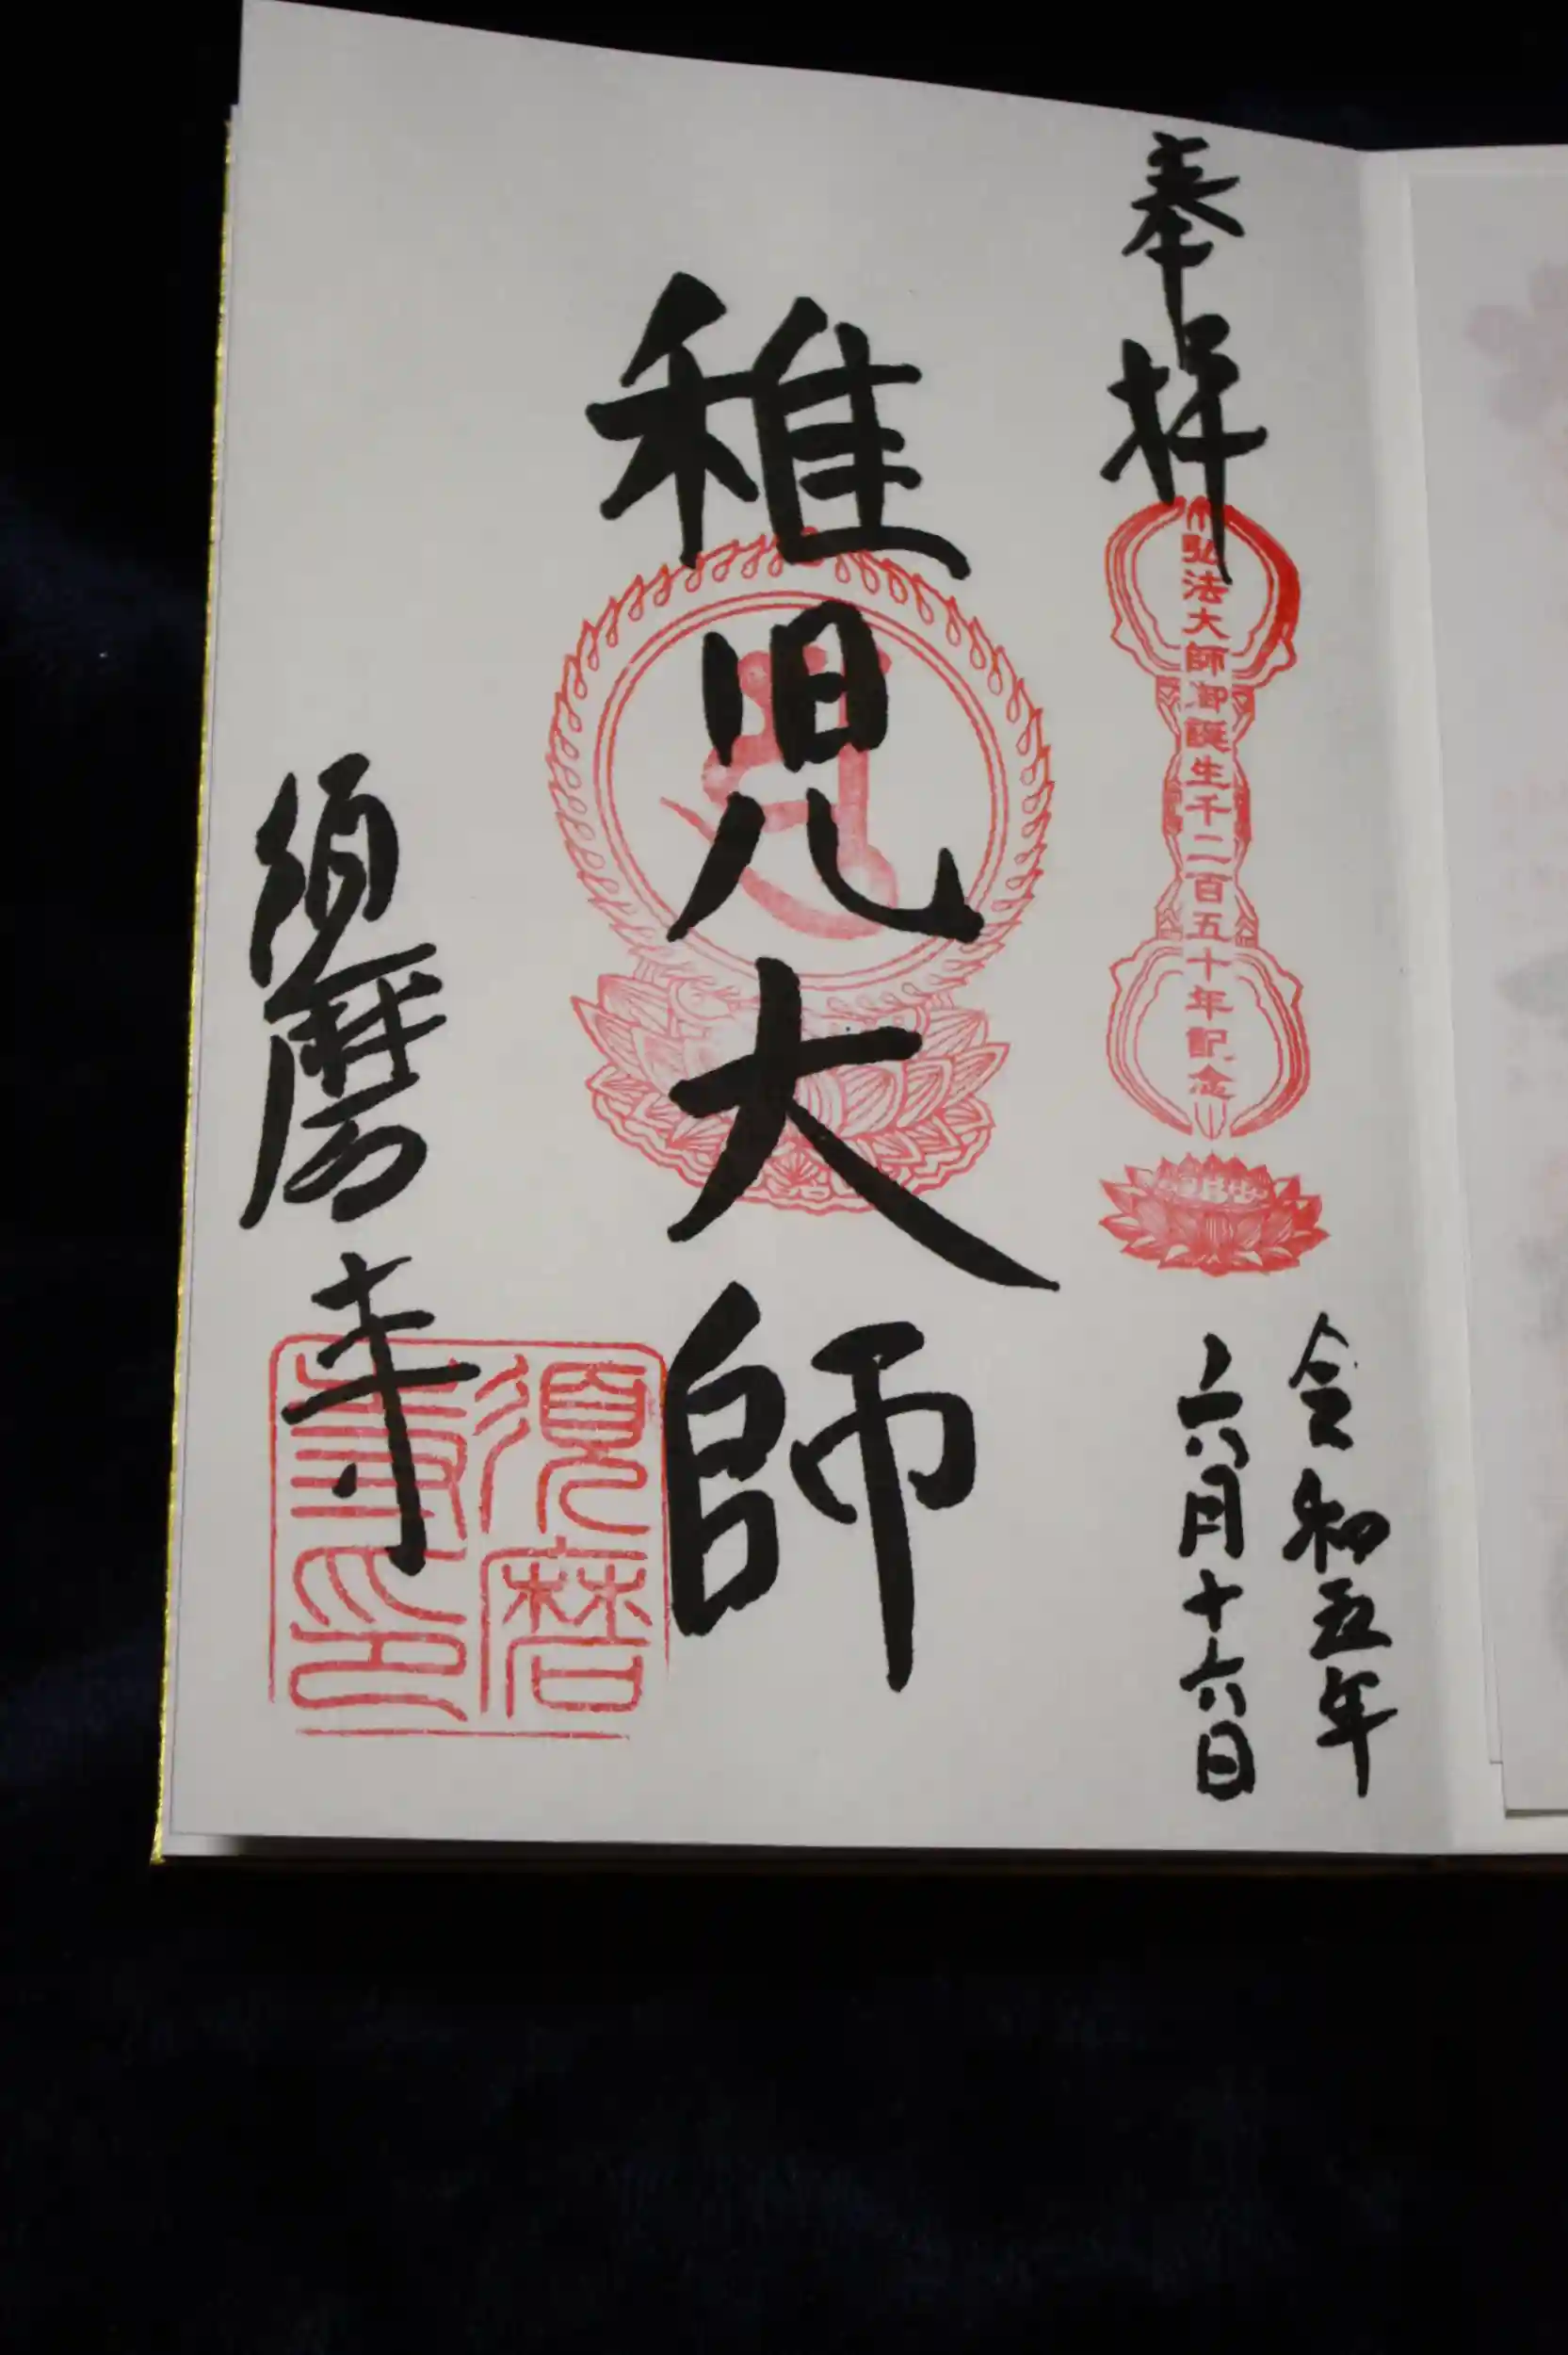 奉拝
弘法大師御誕生千二百五十年記念
令和五年
六月十六日
稚児大師
須磨寺
須磨
寺印